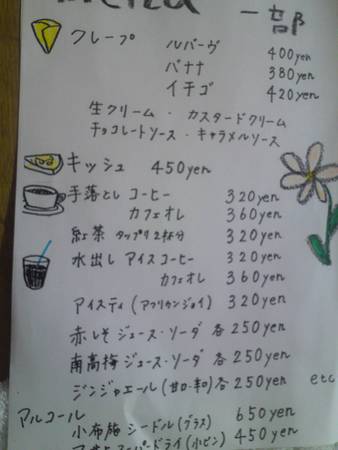 一部
クレープ ルバーヴ 400yen
バナナ 380yen
イチゴ 420yen
生クリーム・カスタードクリーム
チョコレートソース・キャラメルソース
キッシュ 450yen
手落とし コーヒー 320yen
カフェオレ 360yen
紅茶 タップリ2杯分 320yen
水出し アイスコーヒー 320yen
カフェオレ 360yen
アイスティ(アフリカンジョイ) 320yen
赤しそ ジュース・ソーダ 各250yen
南高梅 ジュース・ソーダ 各250yen
ジンジャエール(甘口・辛口)各250yen etc
アルコール 650yen
小布施 シードル(グラス)
スーパードライ(小ビン) 450yen